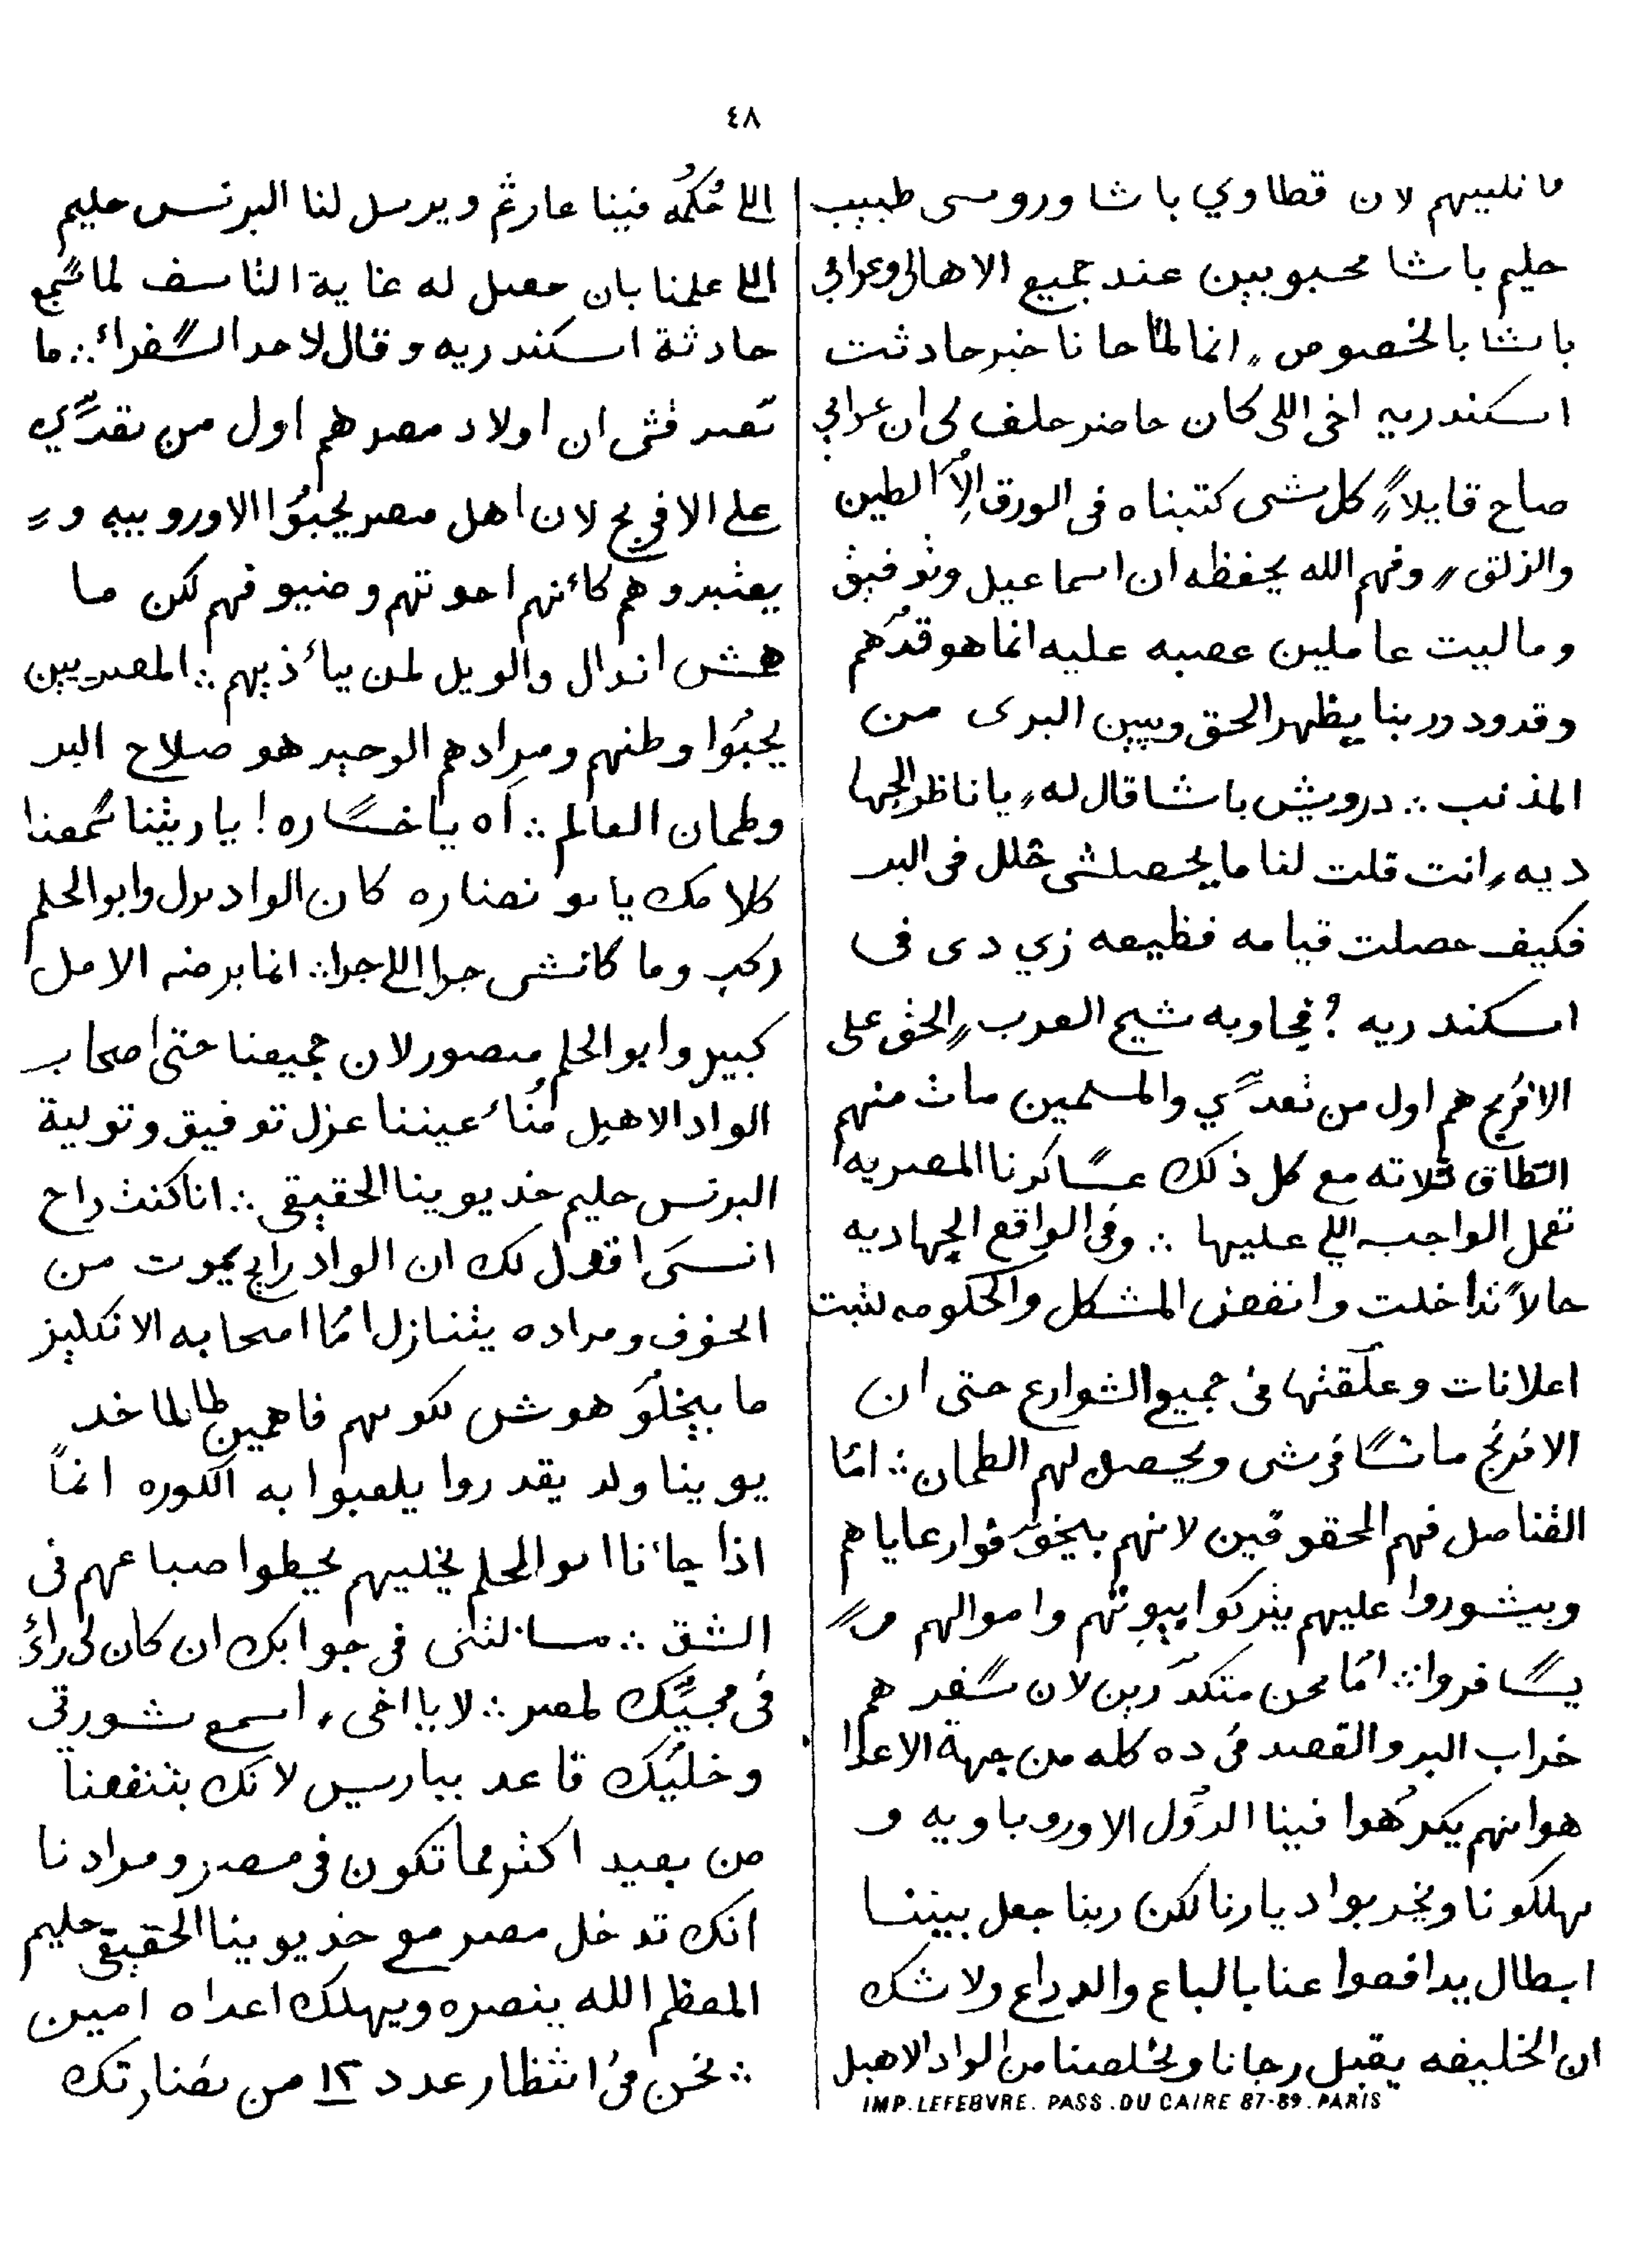 ٤٨
ما نليبهم لان قطاوي باشا وروسى طبيب
حليم باشا محبوبين عند جميع الاهالى وعرابى
باشا بالخصوص انما لمّا جانا خبر حادثت
اسكندريه اخى اللى كان حاضر حلف لى ان عرابي
صاح قايلاً كل شى كتبناه فى الورق الاّ الطين
والزلق وفهم الله يحفظه ان اسماعيل وتوفيق
وماليت عاملين عصبه عليه انما هو قدّهم
وقدود وربنا يظهر الحق ويبين البرى من
المذنب ∴ درويش باشا قال له يا ناظر الجها
ديه انت قلت لنا ما يحصلشى خلل فى البر
فكيف حصلت قيامه فظيعه زي دى فى
اسكندريه ؟ فجاوبه شيخ العرب الحق على
الافرنج هم اول من تعدّي والمسلمين مات منهم
الطاق ثلاثه مع كل ذلك عساكرنا المصريه
تعمل الواجب اللي عليها ∴ وفى الواقع الجهاديه
حالاً تداخلت وانفض المشكل والحكومه لثبت
اعلانات وعلّقتها فى جميع الشوارع حتى ان
الافرنج ما تسافرشى ويحصل لهم الطمان ∴ امّا
القناصل فهم المحقوقين لانهم بيخوّفوا رعاياهم
وبيشوروا عليهم يتركوا بيوتهم واموالهم و
يسافروا ∴ امّا نحن متكدّرين لان سفرهم
خراب البر والقصد فى ده كله من جهة الاعدا
هوانهم يكرّهوا فينا الدّول الاوروباويه و
يهلكونا ويخربوا ديارنا لكن ربنا جعل بيننا
ابطال يدافعوا عنا بالباع والدراع ولا شك
ان الخليفه يقبل رجانا ويخلصنا من الواد الاهبل
IMP. LEFEBVRE. PASS. DU CAIRE 87-89. PARIS
اللى حُكمُه فينا عار غم ويرسل لنا البرنس حليم
اللى علمنا بان حصل له غاية التأسف لما سمع
حادثة اسكندريه وقال لاحد السفراء ∴ ما
تصدقش ان اولاد مصر هم اول من تعدّي
على الافرنج لان اهل مصر يحبّوا الاوروبيه و
يعتبروهم كأنهم اخوتهم وضيوفهم لكن ما
همش اندال والويل لمن يأذيهم ∴ المصريين
يحبّوا وطنهم ومرادهم الوحيد هو صلاح البر
وطمان العالم ∴ آه يا خساره ! يا ريتنا سمعنا
كلامك يا بو نضاره كان الواد نزل وابو الحلم
ركب وما كانشى جرا اللى جرا ∴ انما برضه الامل
كبير وابو الحلم منصور لان جميعنا حتى اصحاب
الواد الاهبل مُناء عيننا عزل توفيق وتولية
البرنس حليم خديوينا الحقيقى ∴ انا كنت راح
انسى اقول لك ان الواد رايح يموت من
الخوف ومراده يتنازل امّا اصحابه الانكليز
ما بيخلّوهوش لكونهم فاهمين طالما خد
يوينا ولد يقدروا يلعبوا به الكوره انماً
اذا جاءنا ابو الحلم يخليهم يحطوا صباعهم فى
الشق ∴ سألتنى فى جوابك ان كان لى رأى
فى مجيّك لمصر ∴ لا يا اخى اسمع شورتى
وخليك قاعد بباريس لانك بتنفعنا
من بعيد اكثر مما تكون فى مصر ومرادنا
انك تدخل مصر مع خديوينا الحقيقى حليم
المعظم الله ينصره ويهلك اعداه امين
∴ نحن فى انتظار عدد ١٢ من نضارتك